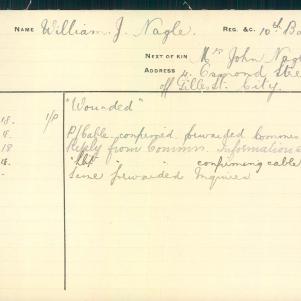 NAME William. J. Nagle REG. &C. 10th Ba
NEXT OF KIN Mrs John Nagl
ADDRESS 4. Osmond Stree
off Gilles St. City.
18. 1/P "Wounded"
P/Cable confirmed forwarded Commns
18 Reply from Commn. Information
18. "Lbl" " " confirming cable
Same forwarded Inquirer